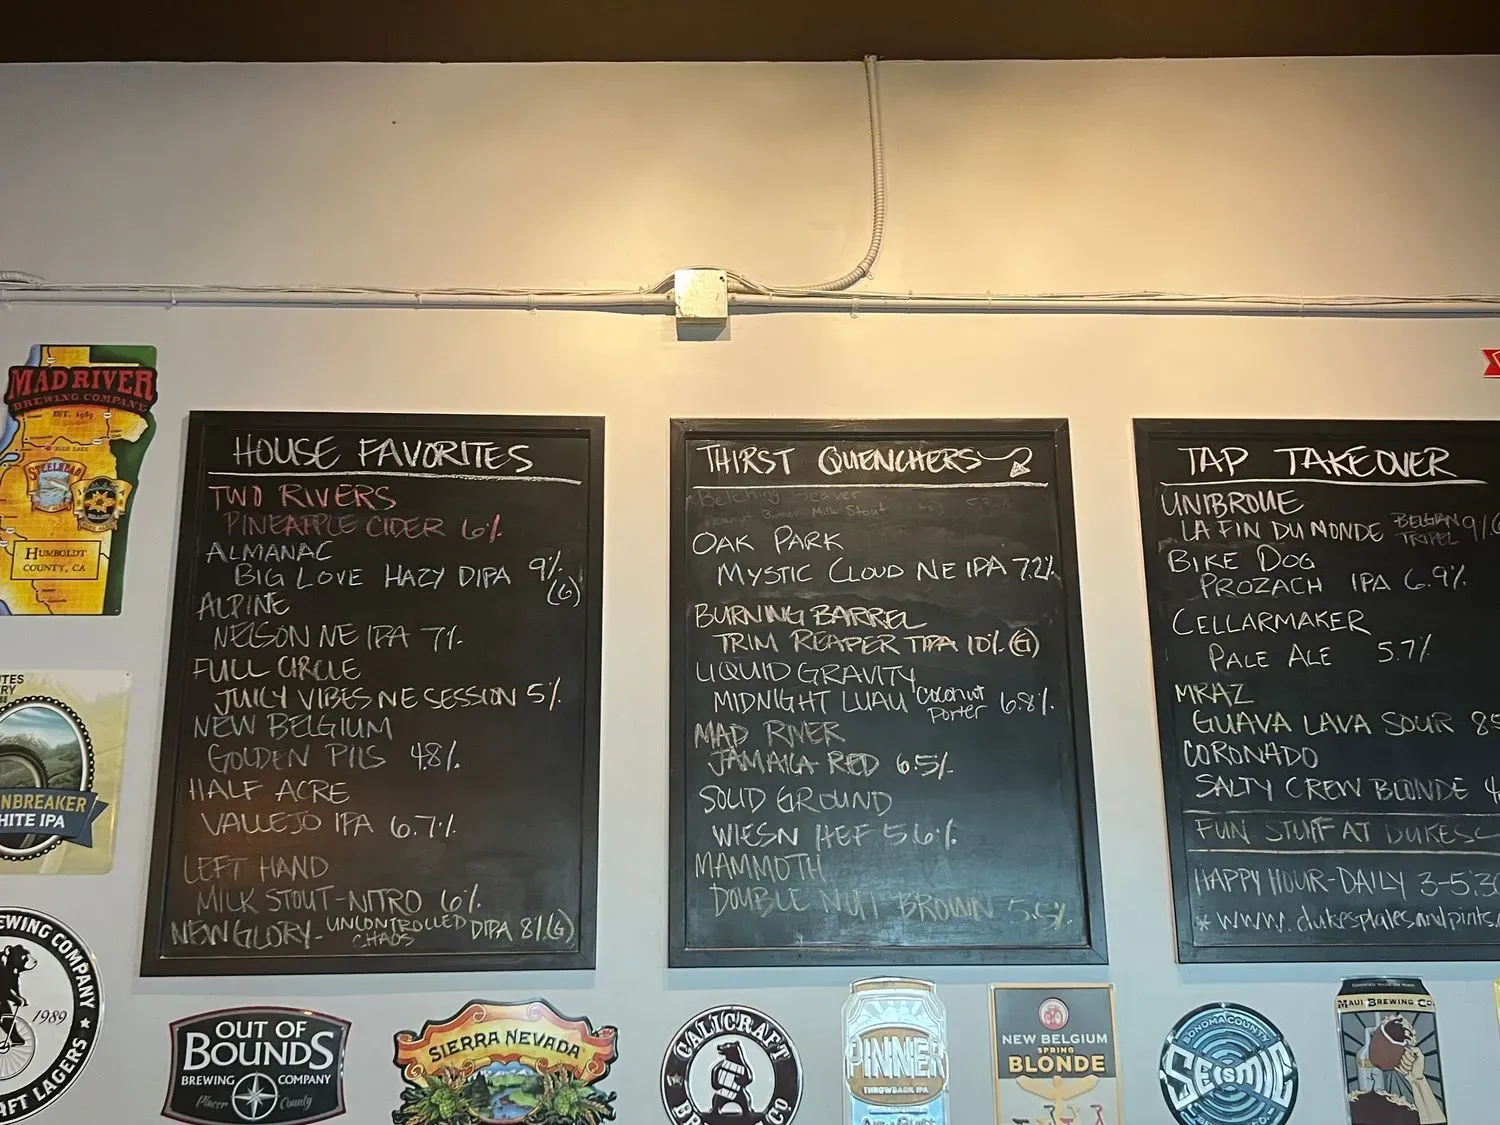 MAD RIVER
BREWING COMPANY
EST. 1989
STEELHEAD
HUMBOLDT
COUNTY, CA
HOUSE FAVORITES
TWO RIVERS
PINEAPPLE CIDER 6%
ALMANAC
BIG LOVE HAZY DIPA 9%
(G)
ALPINE
NELSON NE IPA 7%
FULL CIRCLE
JUICY VIBES NE SESSION 5%
NEW BELGIUM
GOLDEN PILS 4.8%
HALF ACRE
VALLEJO IPA 6.7%
LEFT HAND
MILK STOUT-NITRO 6%
NEW GLORY- UNCONTROLLED CHAOS DIPA 8% (G)
THIRST QUENCHERS
Belching Beaver
Peanut Butter Milk Stout
OAK PARK
MYSTIC CLOUD NE IPA 7.2%
BURNING BARREL
TRIM REAPER TIPA 10% (G)
LIQUID GRAVITY
MIDNIGHT LUAU Coconut Porter 6.8%
MAD RIVER
JAMAICA RED 6.5%
SOLID GROUND
WIESN HEF 5.6%
MAMMOTH
DOUBLE NUT BROWN 5.5%
TAP TAKEOVER
UNIBROUE
LA FIN DU MONDE BELGIAN TRIPEL 9%
BIKE DOG
PROZACH IPA 6.9%
CELLARMAKER
PALE ALE 5.7%
MRAZ
GUAVA LAVA SOUR
CORONADO
SALTY CREW BLONDE
FUN STUFF AT DUKES
HAPPY HOUR-DAILY 3-5:30
* www.dukesplatesandpints.
NBREAKER
HITE IPA
EWING COMPANY
1989
AFT LAGERS
OUT OF
BOUNDS
BREWING COMPANY
Placer County
SIERRA NEVADA
CALICRAFT
PINNER
THROWBACK IPA
NEW BELGIUM
SPRING
BLONDE
SONOMA COUNTY
SEISMIC
MAUI BREWING CO.